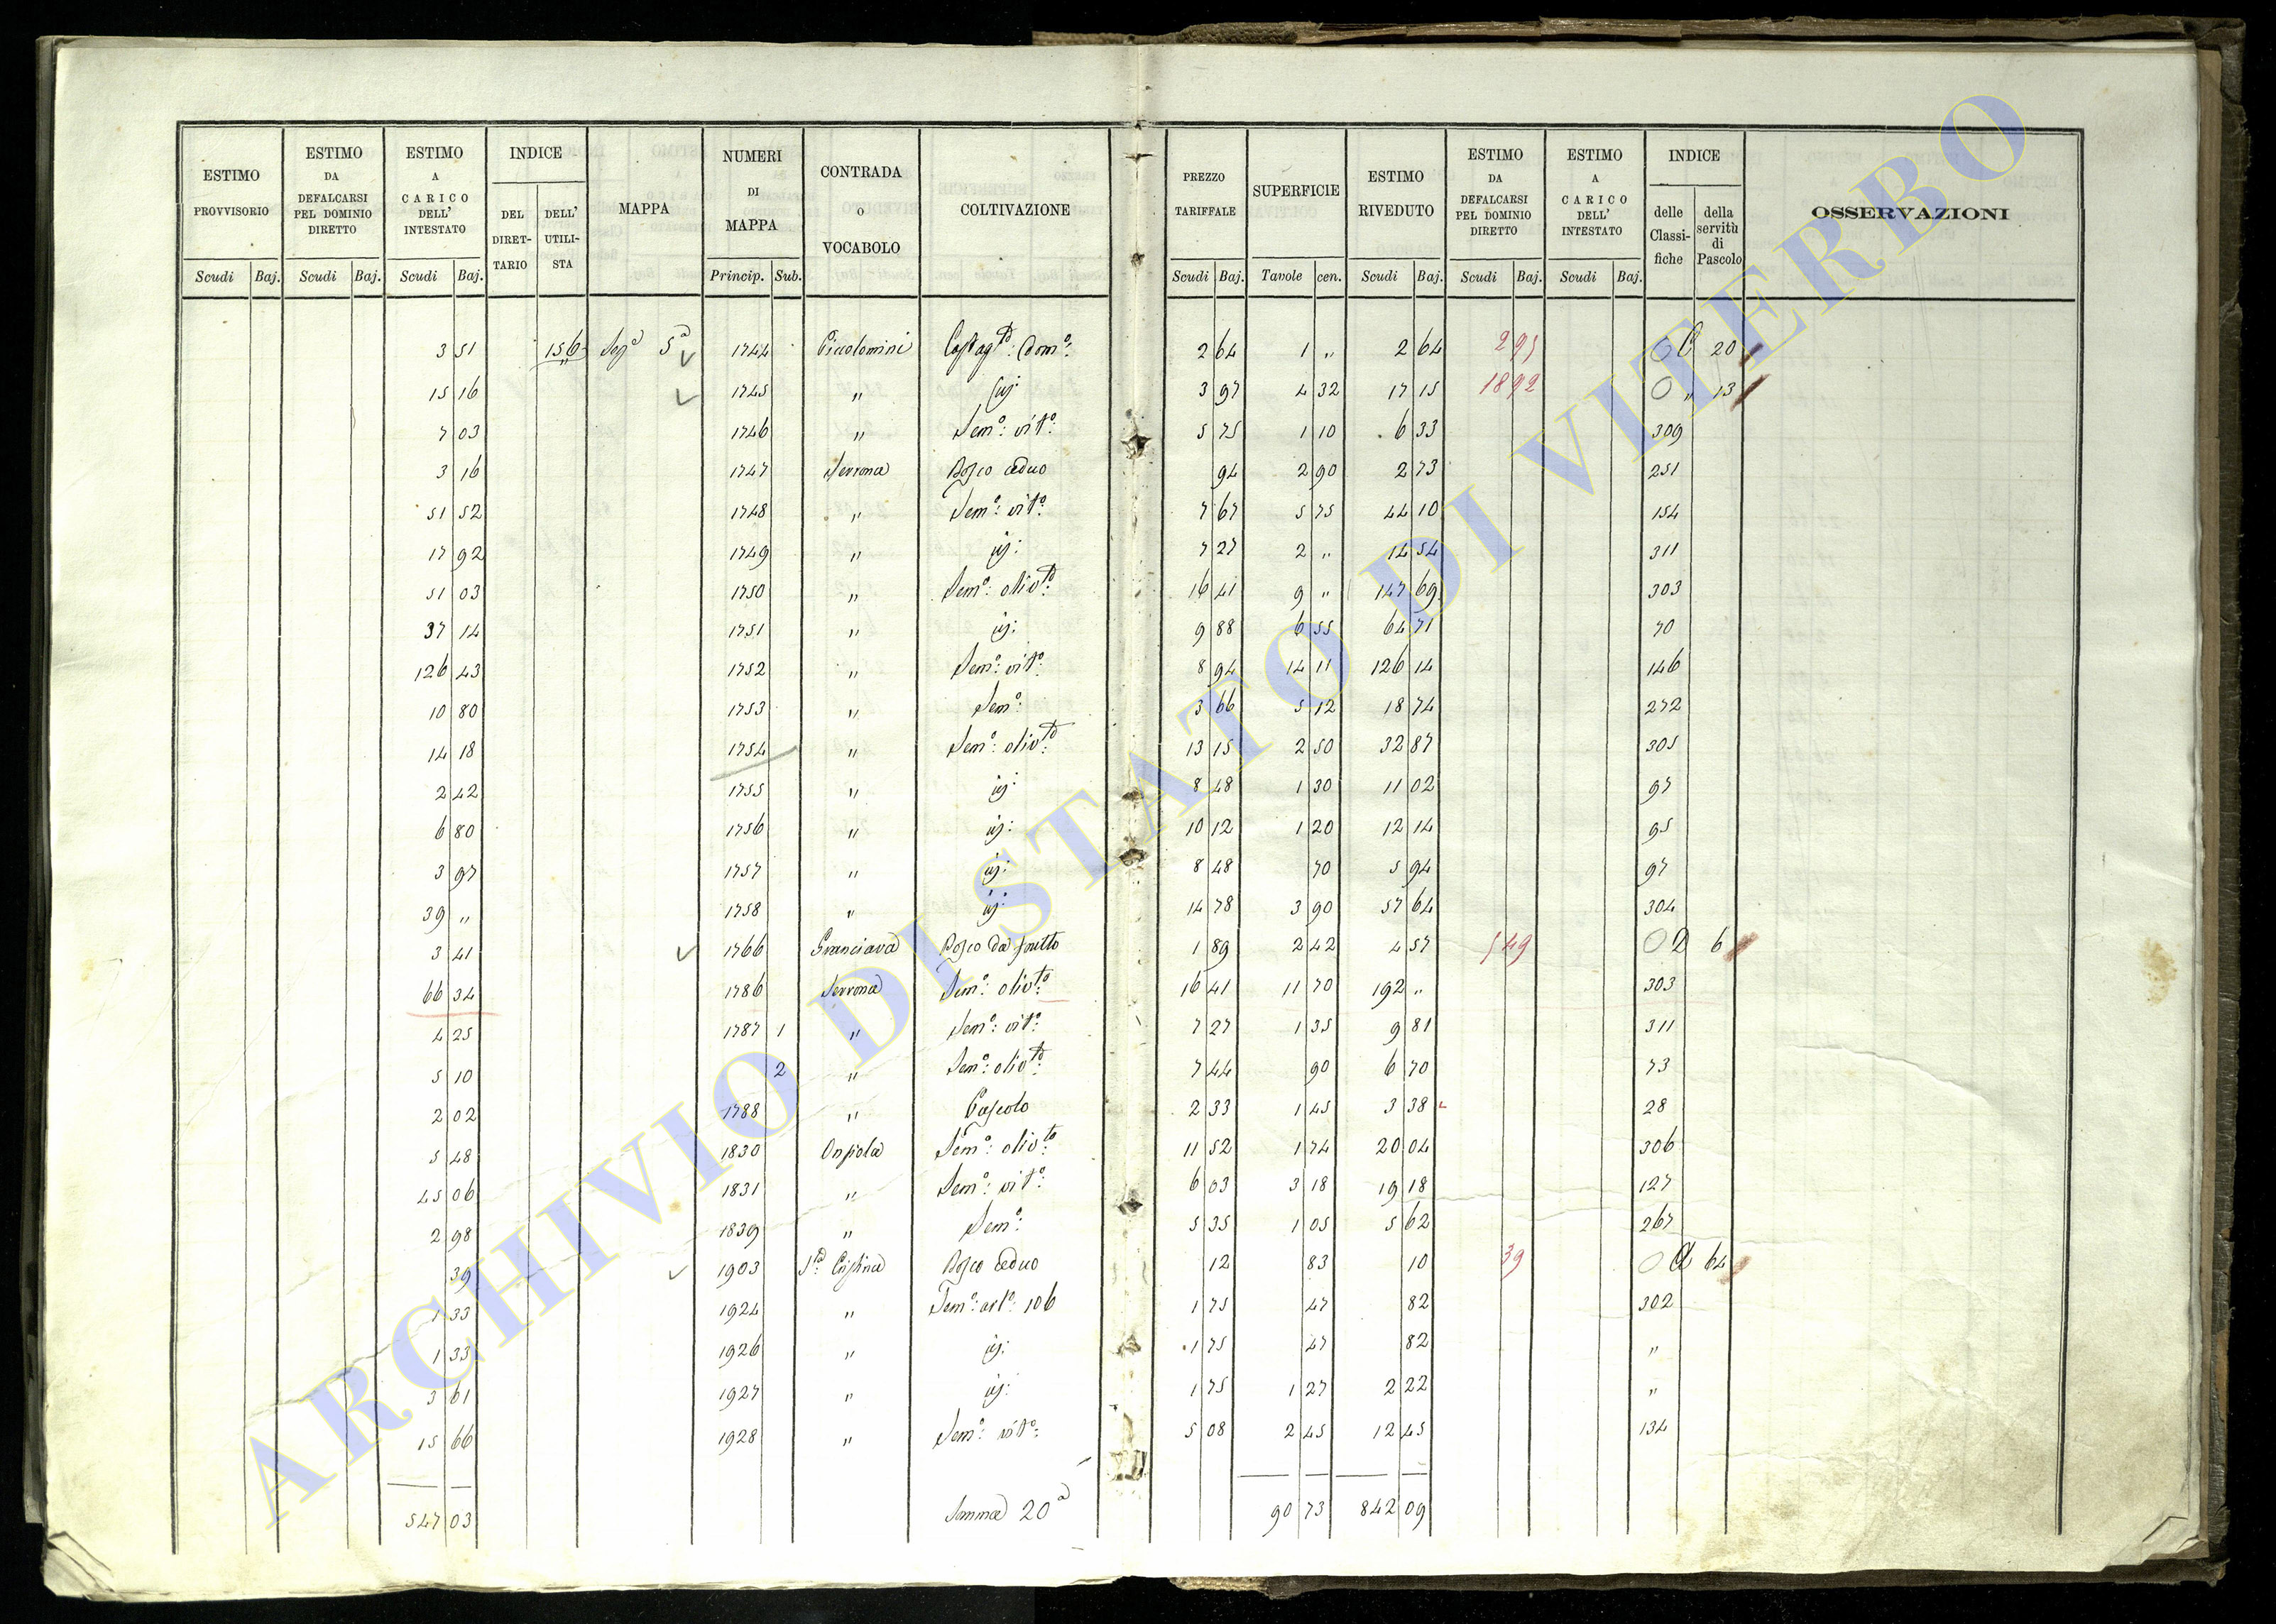 ESTIMO PROVVISORIO Scudi Baj.
ESTIMO DA DEFALCARSI PEL DOMINIO DIRETTO Scudi Baj.
ESTIMO A CARICO DELL' INTESTATO Scudi Baj.
INDICE DEL DIRETTARIO DELL' UTILISTA
MAPPA
NUMERI DI MAPPA Princip. Sub.
CONTRADA o VOCABOLO
COLTIVAZIONE
PREZZO TARIFFALE Scudi Baj.
SUPERFICIE Tavole cen.
ESTIMO RIVEDUTO Scudi Baj.
ESTIMO DA DEFALCARSI PEL DOMINIO DIRETTO Scudi Baj.
ESTIMO A CARICO DELL' INTESTATO Scudi Baj.
INDICE delle Classifiche della servitù di Pascolo
OSSERVAZIONI
3 51 156 Sez.e 5a 1744 Piccolomini Castag.to: Dom.o: 2 64 1 „ 2 64 295 C 20
15 16 1745 „ id: 3 97 4 32 17 15 1892 „ 13
7 03 1746 „ Sem.o: vit.o: 5 75 1 10 6 33 309
3 16 1747 Serrona Bosco ceduo 94 2 90 2 73 251
51 52 1748 „ Sem.o: vit.o: 7 67 5 75 44 10 154
17 92 1749 „ id: 7 27 2 „ 14 54 311
51 03 1750 „ Sem.o: oliv.to: 16 41 9 „ 147 69 303
37 14 1751 „ id: 9 88 6 55 64 71 70
126 43 1752 „ Sem.o: vit.o: 8 94 14 11 126 14 146
10 80 1753 „ Sem.o: 3 66 5 12 18 74 272
14 18 1754 „ Sem.o: oliv.to: 13 15 2 50 32 87 305
2 42 1755 „ id: 8 48 1 30 11 02 97
6 80 1756 „ id: 10 12 1 20 12 14 95
3 97 1757 „ id: 8 48 70 5 94 97
39 „ 1758 „ id: 14 78 3 90 57 64 304
3 41 1766 Bosco da frutto 1 89 2 42 4 57 549 D 6
66 34 1786 Serrona Sem.o: oliv.to: 16 41 11 70 192 „ 303
4 25 1787 1 „ Sem.o: vit.o: 7 27 1 35 9 81 311
5 10 2 „ Sem.o: oliv.to: 7 44 90 6 70 73
2 02 1788 „ Pascolo 2 33 1 45 3 38 28
5 48 1830 Sem.o: oliv.to: 11 52 1 74 20 04 306
45 06 1831 „ Sem.o: vit.o: 6 03 3 18 19 18 127
2 98 1839 „ Sem.o: 5 35 1 05 5 62 267
39 1903 S.ta: Cristina Bosco ceduo 12 83 10 39 64
1 33 1924 „ 106 1 75 47 82 302
1 33 1926 „ id: 1 75 47 82 „
3 61 1927 „ id: 1 75 1 27 2 22 „
15 66 1928 „ Sem.o: vit.o: 5 08 2 45 12 45 134
547 03 Somma 20a 90 73 842 09
ARCHIVIO DI STATO DI VITERBO